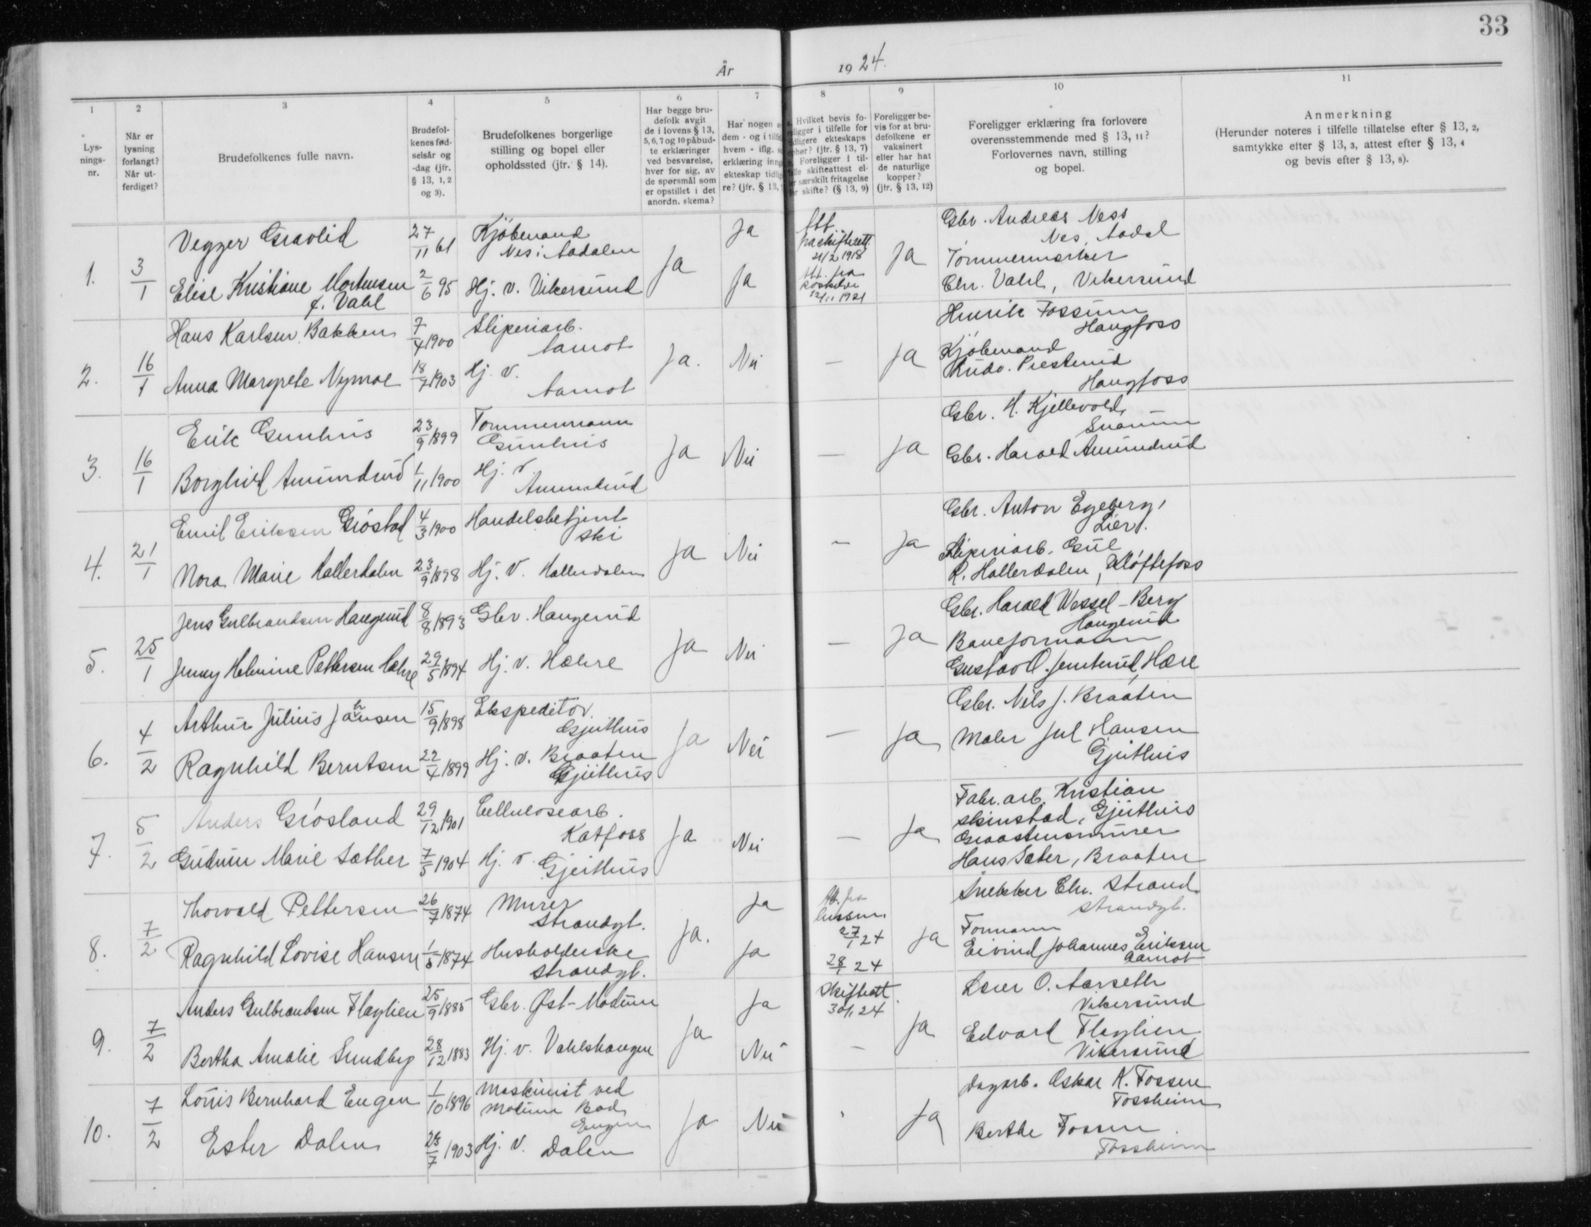 33
År 1924.
1
Lys-
nings-
nr.
2
Når er
lysning
forlangt?
Når ut-
ferdiget?
3
Brudefolkenes fulle navn.
4
Brudefol-
kenes fød-
selsår og
-dag (jfr.
§ 13, 1, 2
og 3).
5
Brudefolkenes borgerlige
stilling og bopel eller
opholdssted (jfr. § 14).
6
Har begge bru-
defolk avgit
de i lovens § 13,
5, 6, 7 og 10 påbud-
te erklæringer
ved besvarelse,
hver for sig, av
de spørsmål som
er opstillet i det
anordn. skema?
7
Har nogen
dem - og i
hvem - iflg.
erklæring
ekteskap
re? (jfr. § 13,
8
Hvilket bevis fo-
religger i tilfelle for
tidligere ekteskaps
ophør? (jfr. § 13, 7)
Foreligger i til-
felle skifteattest el-
ler særskilt fritagelse
for skifte? (§ 13, 9)
9
Foreligger be-
vis for at bru-
defolkene er
vaksinert
eller har hat
de naturlige
kopper?
(jfr. § 13, 12)
10
Foreligger erklæring fra forlovere
overensstemmende med § 13, 11?
Forlovernes navn, stilling
og bopel.
11
Anmerkning
(Herunder noteres i tilfelle tillatelse efter § 13, 2,
samtykke efter § 13, 3, attest efter § 13, 4
og bevis efter § 13, 8).
1. 3/1
Vegger Gravlid 27/11 61 Kjøbmand
Nes i Aadalen
Elise Kristiane Mortensen 2/6 95 Hj. v. Vikersund
f. Vahl
Ja
Ja
Ja
Att.
fra skifterett
21/2 1918
Att. fra
12/11 1921
Ja
Gbr. Andreas Ness
Nes, Aadal
Tømmermerker
Chr. Vahl, Vikersund
2. 16/1
Hans Karlsen Bakken 7/4 1900 Sliperiarb.
Aamot
Anna Margrete Nymoe 18/7 1903 Hj. v.
Aamot
Ja. Nei — Ja
Henrik Fossum
Haugfoss
Kjøbmand
Haugfoss
3. 16/1
Erik Gunhus 23/9 1899 Tømmermann
Gunhus
Borghild Amundrud 1/11 1900 Hj. v.
Amundrud
Ja Nei — Ja
Gbr. H. Kjellevold,
Snarum
Gbr. Harald Amundrud
4. 21/1
Emil Eriksen Grøstad 4/3 1900 Handelsbetjent
Ski
Nora Marie Hallerdalen 23/9 1898 Hj. v. Hallerdalen
Ja Nei - Ja
Gbr. Anton Egeberg,
Lier.
Sliperiarb. Gul
R. Hallerdalen, Kløftefoss
5. 25/1
Jens Gulbrandsen Haugerud 8/8 1893 Gbr. Haugerud
Jenny Helmine Pettersen Hæhre 29/5 1894 Hj. v. Hæhre
Ja Nei — Ja
Gbr. Harald Wessel-Berg
Haugerud
Baneformann
Gustav O. Jonterud, Hære
6. 4/2
Arthur Julius Johansen 15/9 1898 Ekspeditør
Gjeithus
Ragnhild Berntsen 22/4 1899 Hj. v. Braaten
Gjeithus
Ja Nei — Ja
Gbr. Nils J. Braaten
Maler Jul Hansen
Gjeithus
7. 5/2
Anders Grøsland 29/12 1901 Cellulosearb.
Katfoss
Gudrun Marie Sæther 7/5 1904 Hj. v. Gjeithus
Ja Nei — Ja
Fabr. arb. Kristian
Skinstad, Gjeithus
Graastensmurer
Hans Sæter, Braaten
8. 7/2
Thorvald Pettersen 26/7 1874 Murer
Strandgt.
Ragnhild Lovise Hansen 1/5 1874 Husholderske
Strandgt.
Ja.
Ja
Ja
Att. fra
27/1 24
28/1 24
Ja
Snekker Chr. Strand
Strandgt.
Formann
Eivind Johannes Eriksen
Aamot
9. 7/2
Anders Gulbrandsen Flaglien 25/9 1885 Gbr. Øst-Modum
Bertha Amalie Sundby 28/12 1883 Hj. v. Vahlshaugen
Ja
Ja
Nei
Skifteatt.
30/1 24
—
Ja
Lærer O. Aarseth
Vikersund
Edvard Flaglien
Vikersund
10. 7/2
Louis Bernhard Engen 1/10 1896 Maskinist ved
Modum Bad
Engen
Ester Dalen 28/7 1903 Hj. v. Dalen
Ja Nei - Ja
Dagarb. Oskar K. Fossen
Fossheim
Berthe Fossen
Fossheim